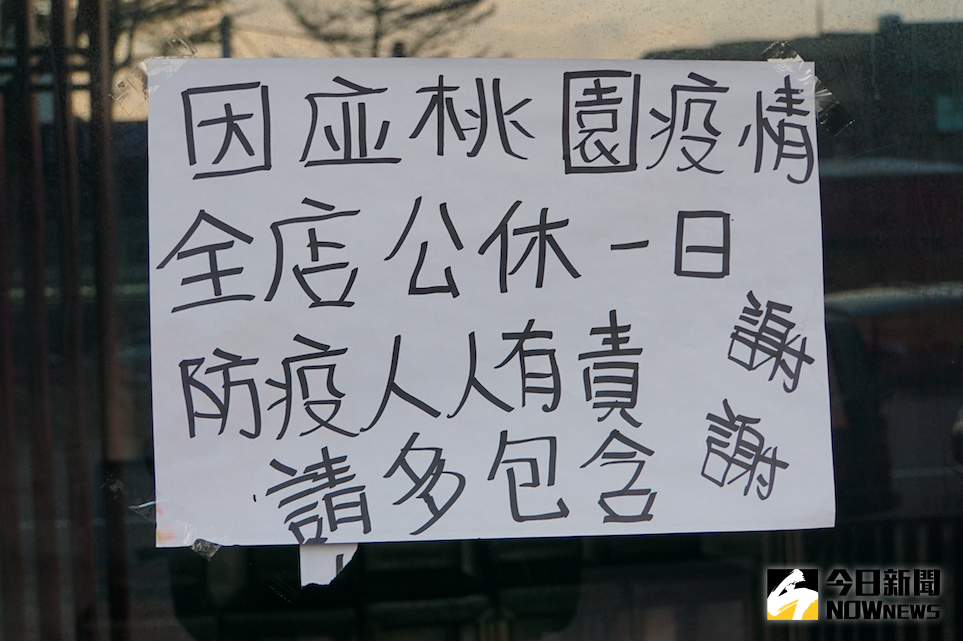 因应桃園疫情
全店公休一日
防疫人人有責
請多包含
謝謝
今日新聞
NOWNEWS